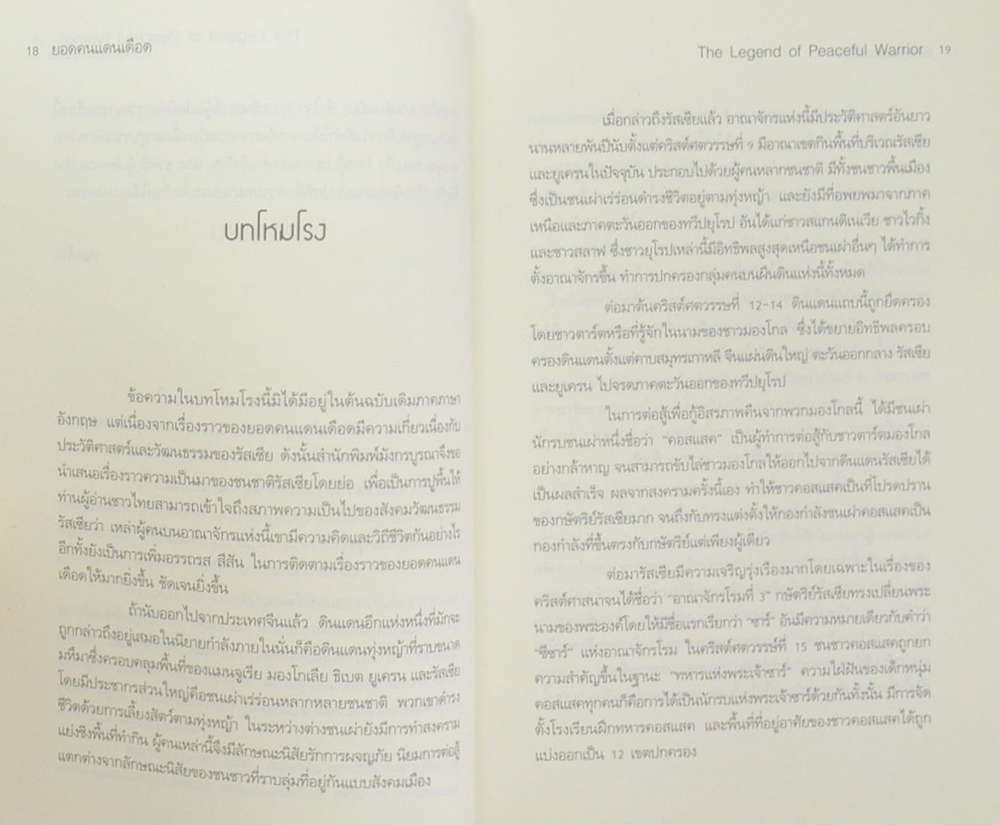 18 ยอดคนแดนเดือด
บทโหมโรง
ข้อความในบทโหมโรงนี้มิได้มีอยู่ในต้นฉบับเดิมภาคภาษา
อังกฤษ แต่เนื่องจากเรื่องราวของยอดคนแดนเดือดมีความเกี่ยวเนื่องกับ
ประวัติศาสตร์และวัฒนธรรมของรัสเซีย ดังนั้นสำนักพิมพ์มังกรบูรณาจึงขอ
นำเสนอเรื่องราวความเป็นมาของชนชาติรัสเซียโดยย่อ เพื่อเป็นการปูพื้นให้
ท่านผู้อ่านชาวไทยสามารถเข้าใจถึงสภาพความเป็นไปของสังคมวัฒนธรรม
รัสเซียว่า เหล่าผู้คนบนอาณาจักรแห่งนี้เขามีความคิดและวิถีชีวิตกันอย่างไร
อีกทั้งยังเป็นการเพิ่มอรรถรส สีสัน ในการติดตามเรื่องราวของยอดคนแดน
เดือดให้มากยิ่งขึ้น ชัดเจนยิ่งขึ้น
ถ้านับออกไปจากประเทศจีนแล้ว ดินแดนอีกแห่งหนึ่งที่มักจะ
ถูกกล่าวถึงอยู่เสมอในนิยายกำลังภายในนั่นก็คือดินแดนทุ่งหญ้าที่ราบขนาด
มหึมาซึ่งครอบคลุมพื้นที่ของแมนจูเรีย มองโกเลีย ธิเบต ยูเครน และรัสเซีย
โดยมีประชากรส่วนใหญ่คือชนเผ่าเร่ร่อนหลากหลายชนชาติ พวกเขาดำรง
ชีวิตด้วยการเลี้ยงสัตว์ตามทุ่งหญ้า ในระหว่างต่างชนเผ่ายังมีการทำสงคราม
แย่งชิงพื้นที่ทำกิน ผู้คนเหล่านี้จึงมีลักษณะนิสัยรักการผจญภัย นิยมการต่อสู้
แตกต่างจากลักษณะนิสัยของชนชาวที่ราบลุ่มที่อยู่กันแบบสังคมเมือง
The Legend of Peaceful Warrior 19
เมื่อกล่าวถึงรัสเซียแล้ว อาณาจักรแห่งนี้มีประวัติศาสตร์อันยาว
นานหลายพันปีนับตั้งแต่คริสต์ศตวรรษที่ 9 มีอาณาเขตกินพื้นที่บริเวณรัสเซีย
และยูเครนในปัจจุบัน ประกอบไปด้วยผู้คนหลากชนชาติ มีทั้งชาวพื้นเมือง
ซึ่งเป็นชนเผ่าเร่ร่อนดำรงชีวิตอยู่ตามทุ่งหญ้า และยังมีที่อพยพมาจากภาค
เหนือและภาคตะวันออกของทวีปยุโรป อันได้แก่ชาวสแกนดิเนเวีย ชาวไวกิ้ง
และชาวสลาฟ ซึ่งชาวยุโรปเหล่านี้มีอิทธิพลสูงสุดเหนือชนเผ่าอื่นๆ ได้ทำการ
ตั้งอาณาจักรขึ้น ทำการปกครองกลุ่มคนบนผืนดินแห่งนี้ทั้งหมด
ต่อมาต้นคริสต์ศตวรรษที่ 12-14 ดินแดนแถบนี้ถูกยึดครอง
โดยชาวตาร์ตหรือที่รู้จักในนามของชาวมองโกล ซึ่งได้ขยายอิทธิพลครอบ
ครองดินแดนตั้งแต่คาบสมุทรเกาหลี จีนแผ่นดินใหญ่ ตะวันออกกลาง รัสเซีย
และยูเครน ไปจรดภาคตะวันออกของทวีปยุโรป
ในการต่อสู้เพื่อกู้อิสรภาพคืนจากพวกมองโกลนี้ ได้มีชนเผ่า
นักรบชนเผ่าหนึ่งชื่อว่า "คอสแสค" เป็นผู้ทำการต่อสู้กับชาวตาร์ตมองโกล
อย่างกล้าหาญ จนสามารถขับไล่ชาวมองโกลให้ออกไปจากดินแดนรัสเซียได้
เป็นผลสำเร็จ ผลจากสงครามครั้งนี้เอง ทำให้ชาวคอสแสคเป็นที่โปรดปราน
ของกษัตริย์รัสเซียมาก จนถึงกับทรงแต่งตั้งให้กองกำลังชนเผ่าคอสแสคเป็น
กองกำลังที่ขึ้นตรงกับกษัตริย์แต่เพียงผู้เดียว
ต่อมารัสเซียมีความเจริญรุ่งเรืองมากโดยเฉพาะในเรื่องของ
คริสต์ศาสนาจนได้ชื่อว่า "อาณาจักรโรมที่ 3" กษัตริย์รัสเซียทรงเปลี่ยนพระ
นามของพระองค์โดยให้มีชื่อแรกเรียกว่า "ซาร์" อันมีความหมายเดียวกับคำว่า
"ซีซาร์" แห่งอาณาจักรโรม ในคริสต์ศตวรรษที่ 15 ชนชาวคอสแสคถูกยก
ความสำคัญขึ้นในฐานะ "ทหารแห่งพระเจ้าซาร์" ความใฝ่ฝันของเด็กหนุ่ม
คอสแสคทุกคนก็คือการได้เป็นนักรบแห่งพระเจ้าซาร์ด้วยกันทั้งนั้น มีการจัด
ตั้งโรงเรียนฝึกทหารคอสแสค และพื้นที่ที่อยู่อาศัยของชาวคอสแสคได้ถูก
แบ่งออกเป็น 12 เขตปกครอง